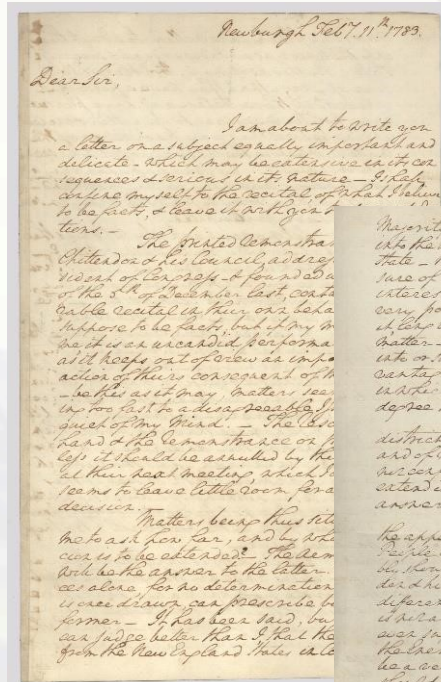 Newburgh Feby. 11th 1783.
Dear Sir,
I am about to write you
a letter on a subject equally important and
delicate - which may be extensive in its con
sequences & serious in its nature - I shall
confine myself to the recital, of what I believe
to be facts, & leave it with you to
tions. -
The printed remonstran
Chittenden & his Council, addres
sident of Congress - & founded u
of the 5th of December last, conta
rable recital in their own beha
suppose to be facts, but if my m
me it is an uncandid performa
as it keeps out of view an impo
action of theirs consequent of th
- be this as it may, matters seem
ing too fast to a disagreeable Is
quiet of my mind. - The Reso
hand & the remonstrance on
less it should be annulled by the
at their next meeting, which I
seems to leave little room for a
decision. -
Matters being thus situ
me to ask how far, and by who
cion is to be extended? - The Arm
will be the answer to the latter.
ces alone, for no determination
is once drawn can prescribe b
former - It has been said, bu
can judge better than I, that the
from the New England States in
Majorit
into the
State -
sure of
interes
very po
it long
matter -
into or
vantag
in whic
degree
district
and of
nor con
extend i
answer
the app
People
bly
den & hi
diferen
is not a
even in
the Ene
be a ve